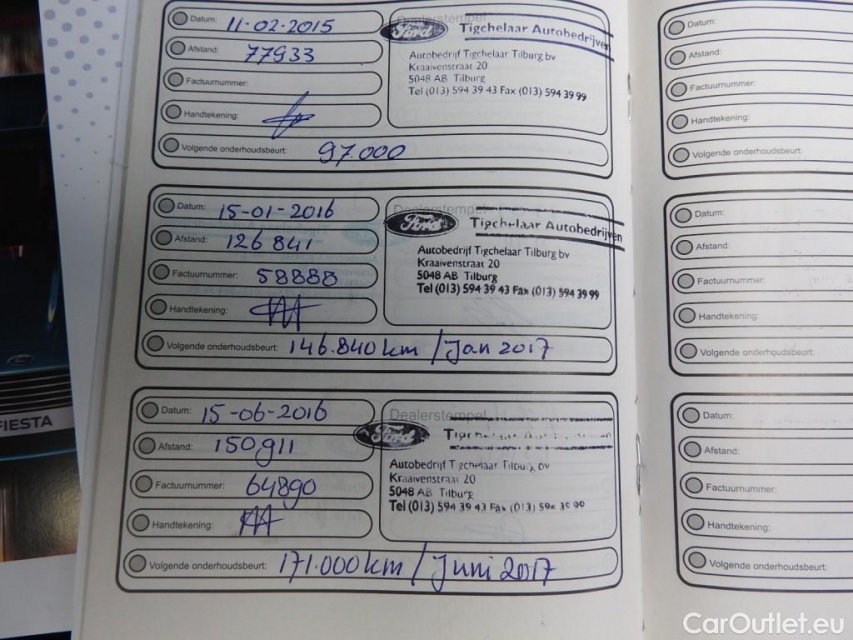 Datum: 11-02-2015
Afstand: 77933
Factuurnummer:
Handtekening:
Volgende onderhoudsbeurt: 97.000
Dealerstempel
Ford Tigchelaar Autobedrijven
Autobedrijf Tigchelaar Tilburg bv
Kraaivenstraat 20
5048 AB Tilburg
Tel (013) 594 39 43 Fax (013) 594 39 99
Datum: 15-01-2016
Afstand: 126841
Factuurnummer: 58888
Handtekening:
Volgende onderhoudsbeurt: 146.840 km / Jan 2017
Dealerstempel
Ford Tigchelaar Autobedrijven
Autobedrijf Tigchelaar Tilburg bv
Kraaivenstraat 20
5048 AB Tilburg
Tel (013) 594 39 43 Fax (013) 594 39 99
Datum: 15-06-2016
Afstand: 150911
Factuurnummer: 64890
Handtekening:
Volgende onderhoudsbeurt: 171.000 km / Juni 2017
Dealerstempel
Ford
Autobedrijf Tigchelaar Tilburg bv
Kraaivenstraat 20
5048 AB Tilburg
Tel (013) 594 39 43 Fax (013) 594 39 99
Datum:
Afstand:
Factuurnummer:
Handtekening:
Volgende onderhoudsbeurt:
Datum:
Afstand:
Factuurnummer:
Handtekening:
Volgende onderhoudsbeurt:
Datum:
Afstand:
Factuurnummer:
Handtekening:
Volgende onderhoudsbeurt:
FIESTA
CarOutlet.eu